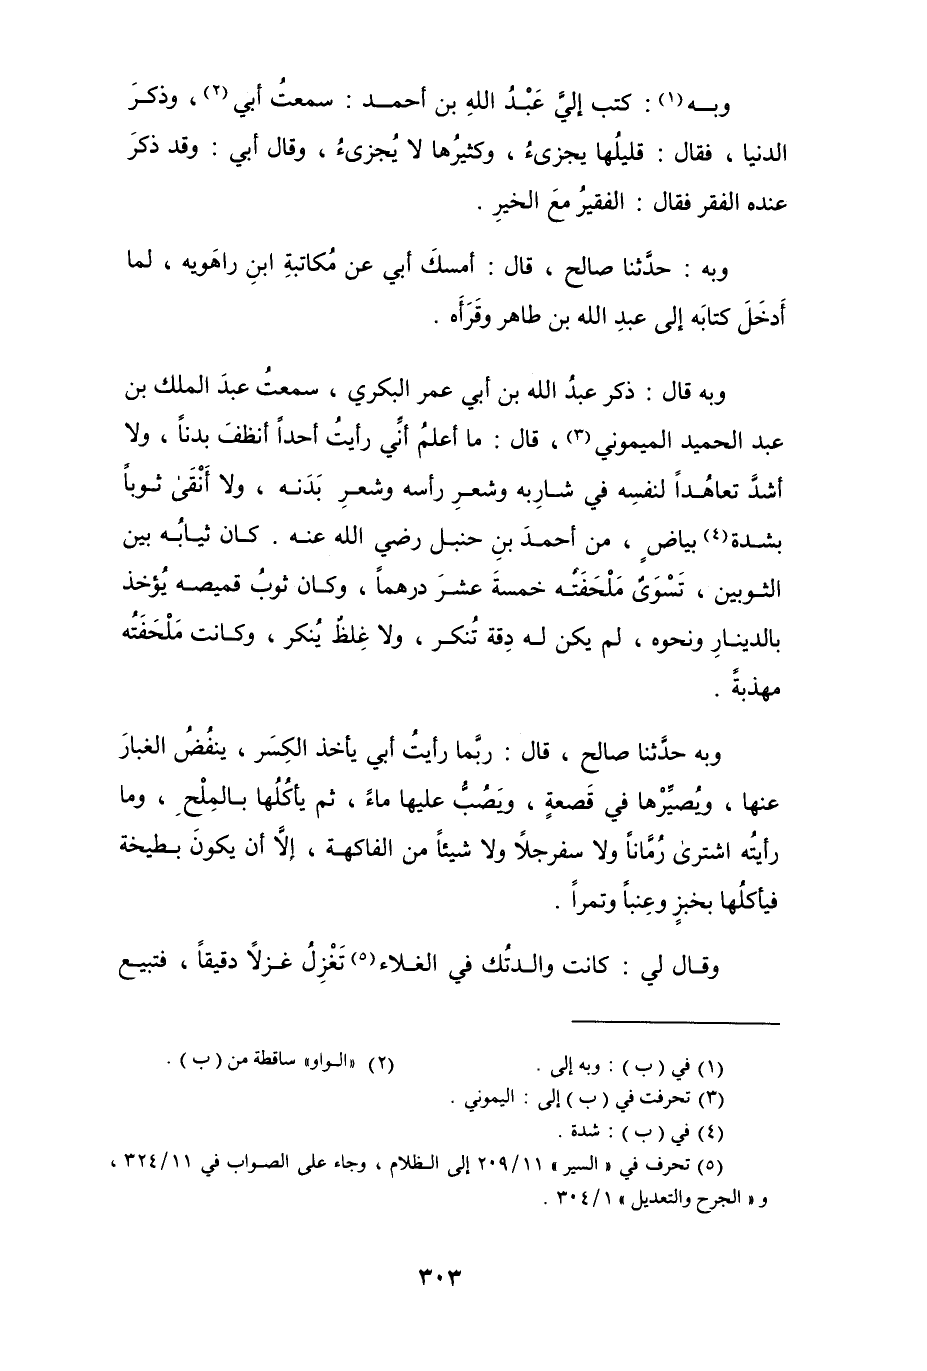 وبـه(١) : كتب إليَّ عَبْدُ اللهِ بن أحمـد : سمعتُ أبي(٢) ، وذكـرَ
الدنيا ، فقال : قليلُها يجزىءُ ، وكثيرُها لا يُجزىءُ ، وقال أبي : وقد ذكرَ
عنده الفقر فقال : الفقيرُ معَ الخيرِ .
وبه : حدَّثنا صالح ، قال : أمسكَ أبي عن مُكاتبةِ ابنِ راهَويه ، لما
أَدخَلَ كتابَه إلى عبدِ الله بن طاهر وقَرَأَه .
وبه قال : ذكر عبدُ الله بن أبي عمر البكري ، سمعتُ عبدَ الملك بن
عبد الحميد الميموني(٣) ، قال : ما أعلمُ أنِّي رأيتُ أحداً أنظفَ بدناً ، ولا
أشدَّ تعاهُـداً لنفسِه في شـارِبه وشعـرِ رأسه وشعـرِ بَدَنـه ، ولا أَنْقَىٰ ثـوباً
بشـدة(٤) بياضٍ ، من أحمـدَ بنِ حنبـل رضي الله عنـه . كـان ثيـابُـه بين
الثـوبين ، تَسْوَىٰ مَلْحَفَتُـه خمسةَ عشـرَ درهمـاً ، وكـان ثوبُ قميصـه يُؤخذ
بالدينـارِ ونحوه ، لم يكن لـه دِقة تُنكـر ، ولا غِلظٌ يُنكر ، وكـانت مَلْحَفَتُه
مهذبةً .
وبه حدَّثنا صالح ، قال : ربَّما رأيتُ أبي يأخذ الكِسَر ، ينفُضُ الغبارَ
عنها ، ويُصيِّرُها في قَصعةٍ ، ويَصُبُّ عليها ماءً ، ثم يأكُلُها بـالمِلْحِ ، وما
رأيتُه اشترىٰ رُمَّاناً ولا سفرجلًا ولا شيئاً من الفاكهـة ، إلَّا أن يكونَ بـطيخة
فيأكلُها بخبزٍ وعِنباً وتمراً .
وقـال لي : كانت والـدتُك في الغـلاء(٥) تَغْزِلُ غـزلًا دقيقاً ، فتبيـع
(١) في ( ب ) : وبه إلى . (٢) «الـواو» ساقطة من ( ب ) .
(٣) تحرفت في ( ب ) إلى : اليموني .
(٤) في ( ب ) : شدة .
(٥) تحرف في « السير » ٢٠٩/١١ إلى الـظلام ، وجاء على الصـواب في ٣٢٤/١١ ،
و « الجرح والتعديل » ٣٠٤/١ .
٣٠٣